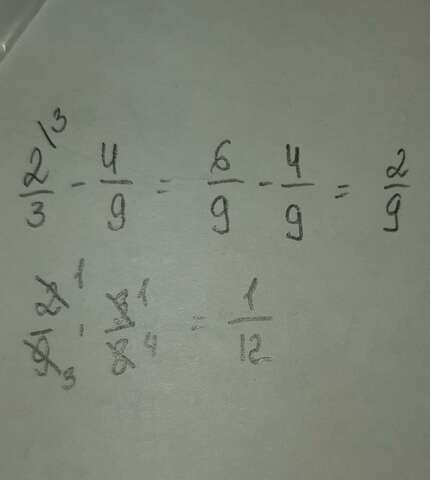 2/3 /3 - 4/9 = 6/9 - 4/9 = 2/9
2/9 1/3 · 3/8 1/4 = 1/12